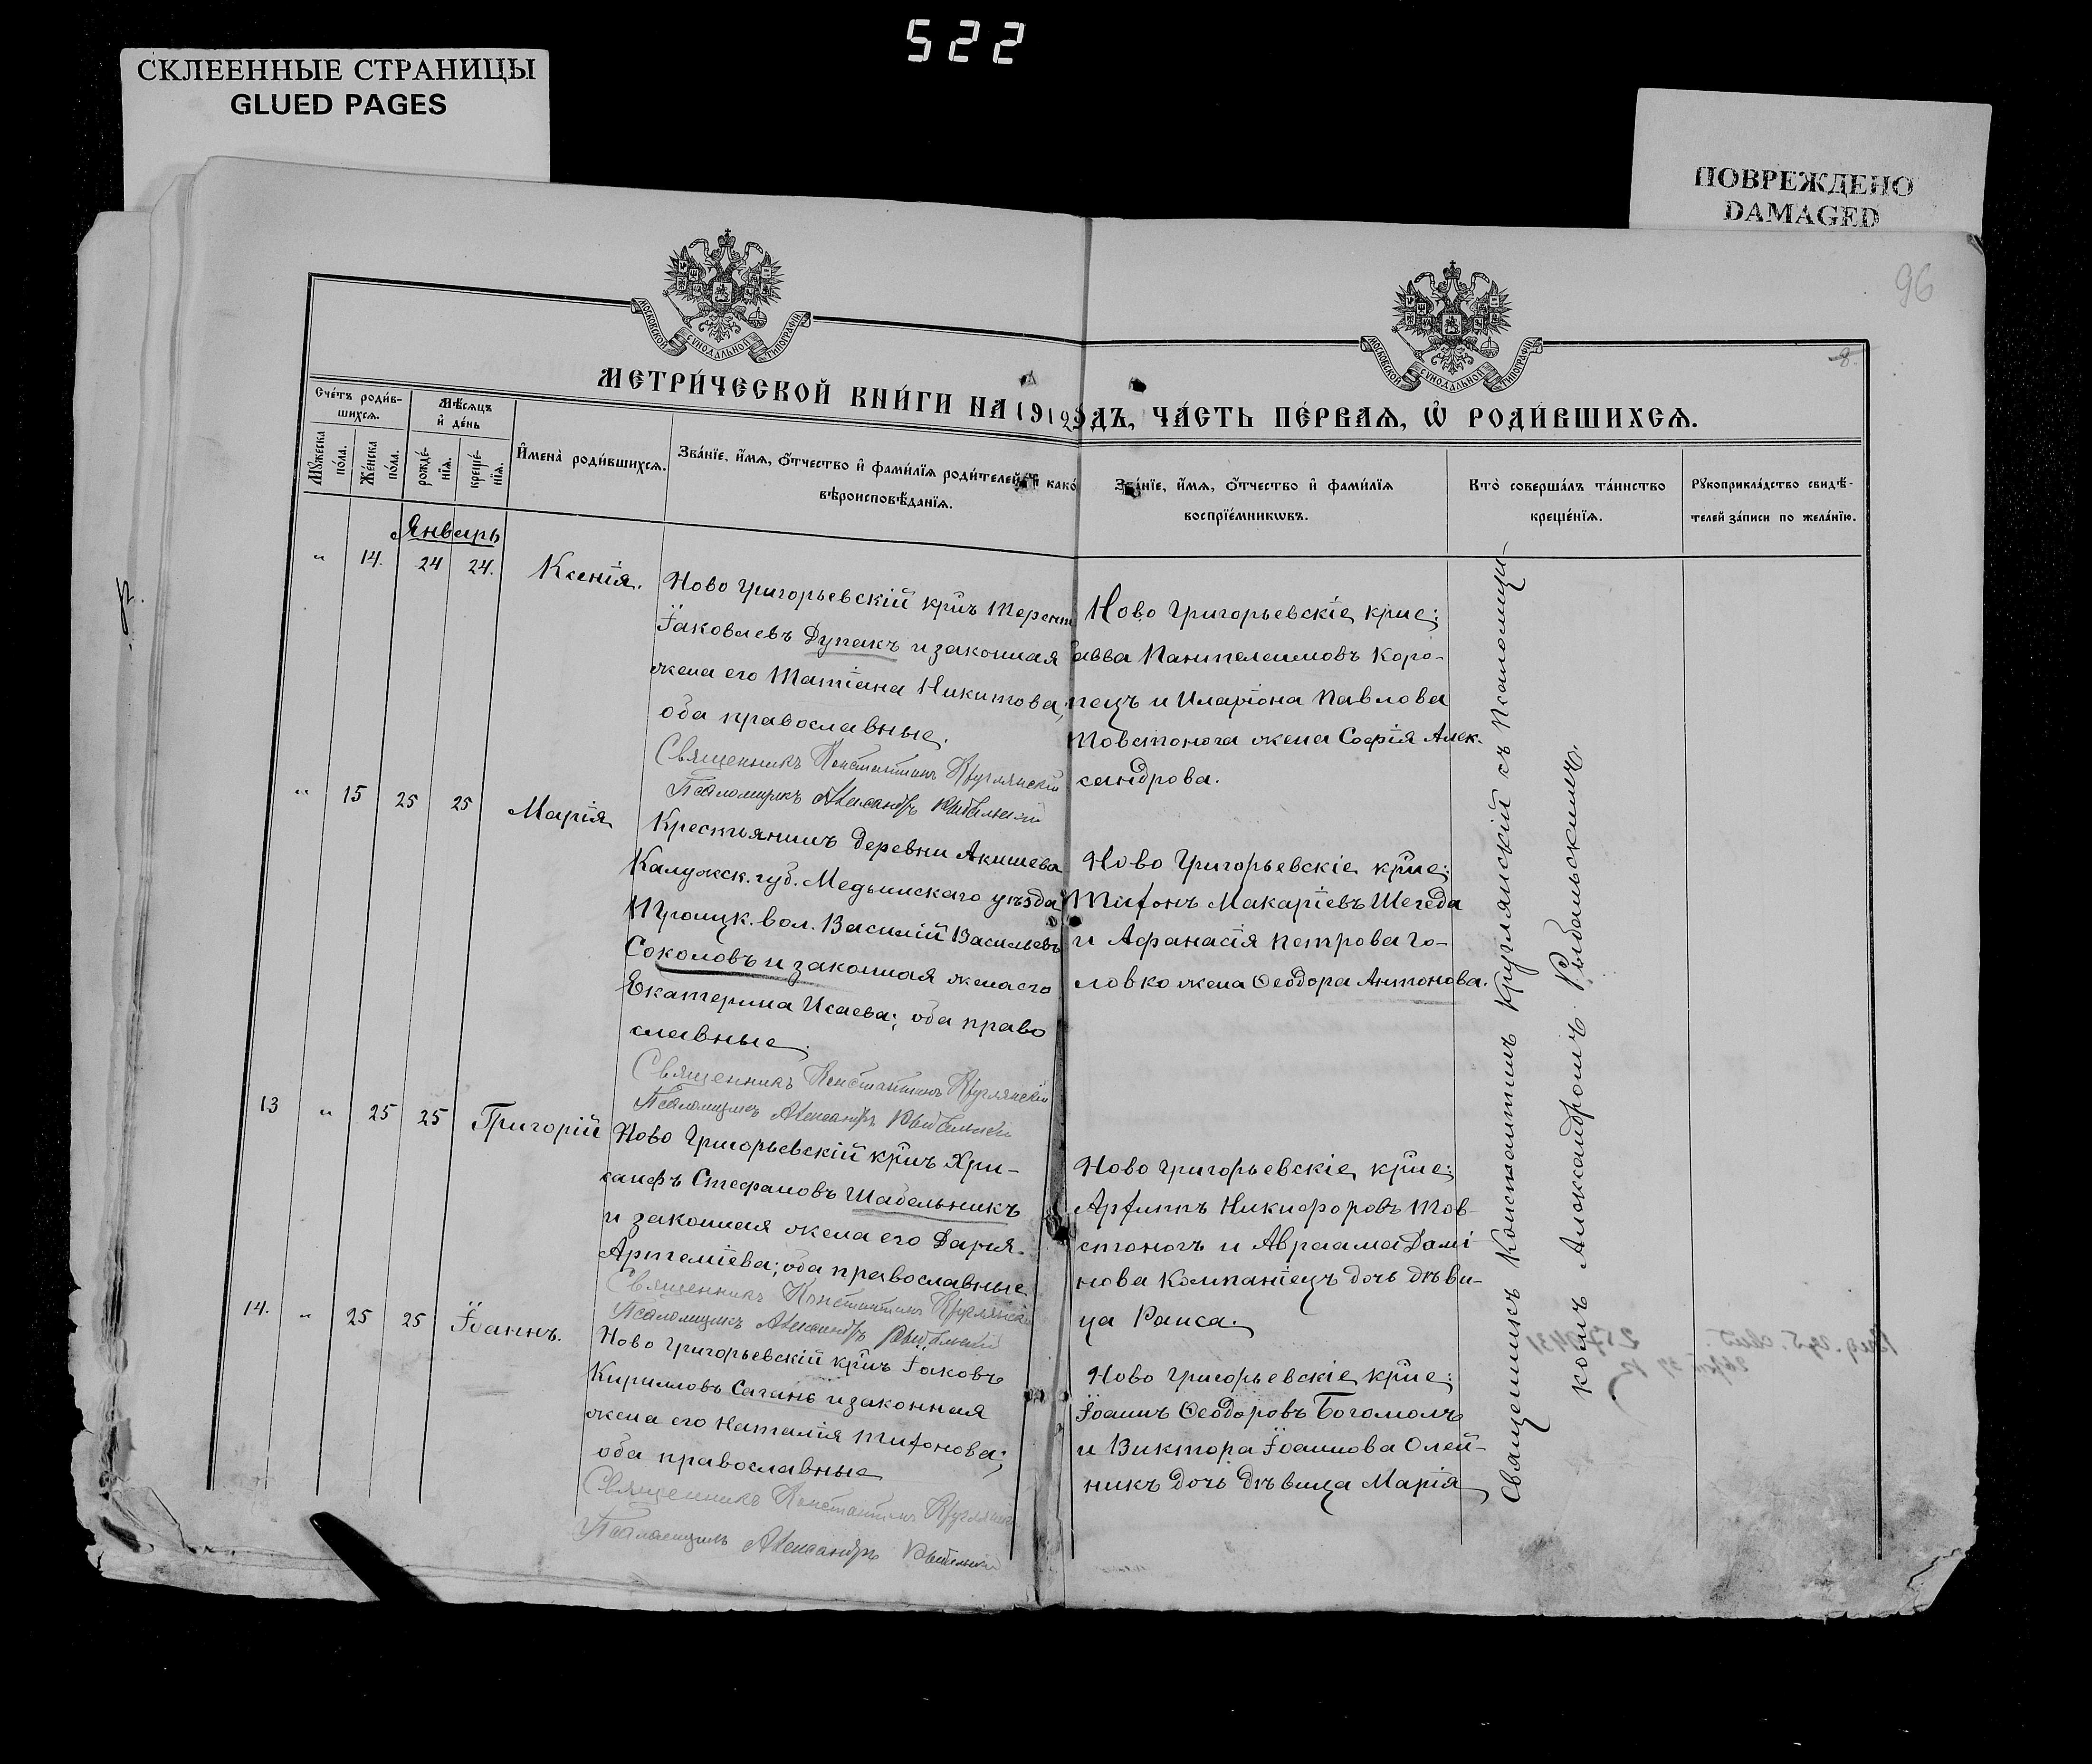 522
СКЛЕЕННЫЕ СТРАНИЦЫ
GLUED PAGES
ПОВРЕЖДЕНО
DAMAGED
96
8.
МОСКОВСКОЙ СѴНОДАЛЬНОЙ ТИПОГРАФІИ
МОСКОВСКОЙ СѴНОДАЛЬНОЙ ТИПОГРАФІИ
МЕТРИ́ЧЕСКОЙ КНИ́ГИ НА 1912 ДЪ, ЧА́СТЬ ПЕ́РВАѦ, Ѽ РОДИ́ВШИХСѦ.
Сче́тъ роди́в-
шихсѧ.
Мꙋ́жеска
по́ла.
Же́нска
по́ла.
Мѣ́сѧцъ
и҆ де́нь
рожде́-
нїѧ.
креще́-
нїѧ.
И҆мена̀ роди́вшихсѧ.
Зва́нїе, и҆́мѧ, ѻ҆́тчество и҆ фами́лїѧ роди́телей, и҆ како́
вѣроисповѣ́данїѧ.
Зва́нїе, и҆́мѧ, ѻ҆́тчество и҆ фами́лїѧ
воспрїе́мникѡвъ.
Кто̀ соверша́лъ та́инство
креще́нїѧ.
Рꙋкоприкла́дство свидѣ́-
телей за́писи по жела́нїю.
Январь
" 14. 24 24. Ксенія.
Ново Григорьевскій кр̃нъ Терент
Іаковлевъ Дупакъ и законная
жена его Татіана Никитова;
оба православные.
Священникъ Константинъ Круглянскій
Псаломщикъ Александръ Рыбальскій
Ново Григорьевскіе кр̃не:
Савва Пантелеимовъ Коро-
пецъ и Иларіона Павлова
Товстонога жена Софія Алек-
сандрова.
" 15 25 25 Марія
Крестьянинъ деревни Акишева
Калужск. губ. Медынскаго уѣзда
Троицк. вол. Василій Васильевъ
Соколовъ и законная жена его
Екатерина Исаева; оба право
славные.
Священникъ Константинъ Круглянскій
Псаломщикъ Александръ Рыбальскій
Ново Григорьевскіе кр̃не:
Тихонъ Макаріевъ Шегеда
и Афанасія Петрова Го-
ловко жена Ѳеодора Антонова.
13 " 25 25 Григорій
Ново Григорьевскій кр̃нъ Хри-
санфъ Стефановъ Шабельникъ
и законная жена его Дарія
Артеміева; оба православные
Священникъ Константинъ Круглянскій
Псаломщикъ Александръ Рыбальскій
Ново Григорьевскіе кр̃не:
Архиппъ Никифоровъ Тов-
стоногъ и Авраама Домі
нова Компаніецъ дочь дѣви-
ца Раиса.
14. " 25 25 Іоаннъ.
Ново Григорьевскій кр̃нъ Іаковъ
Кирилловъ Сагань и законная
жена его Наталія Тихонова;
оба православные
Священникъ Константинъ Круглянскій
Псаломщикъ Александръ Рыбальскій
Ново Григорьевскіе кр̃не:
Іоаннъ Ѳеодоровъ Богомолъ
и Виктора Іоаннова Олей-
никъ дочь дѣвица Марія
Священникъ Константинъ Круглянскій съ Псаломщи-
комъ Александромъ Рыбальскимъ.